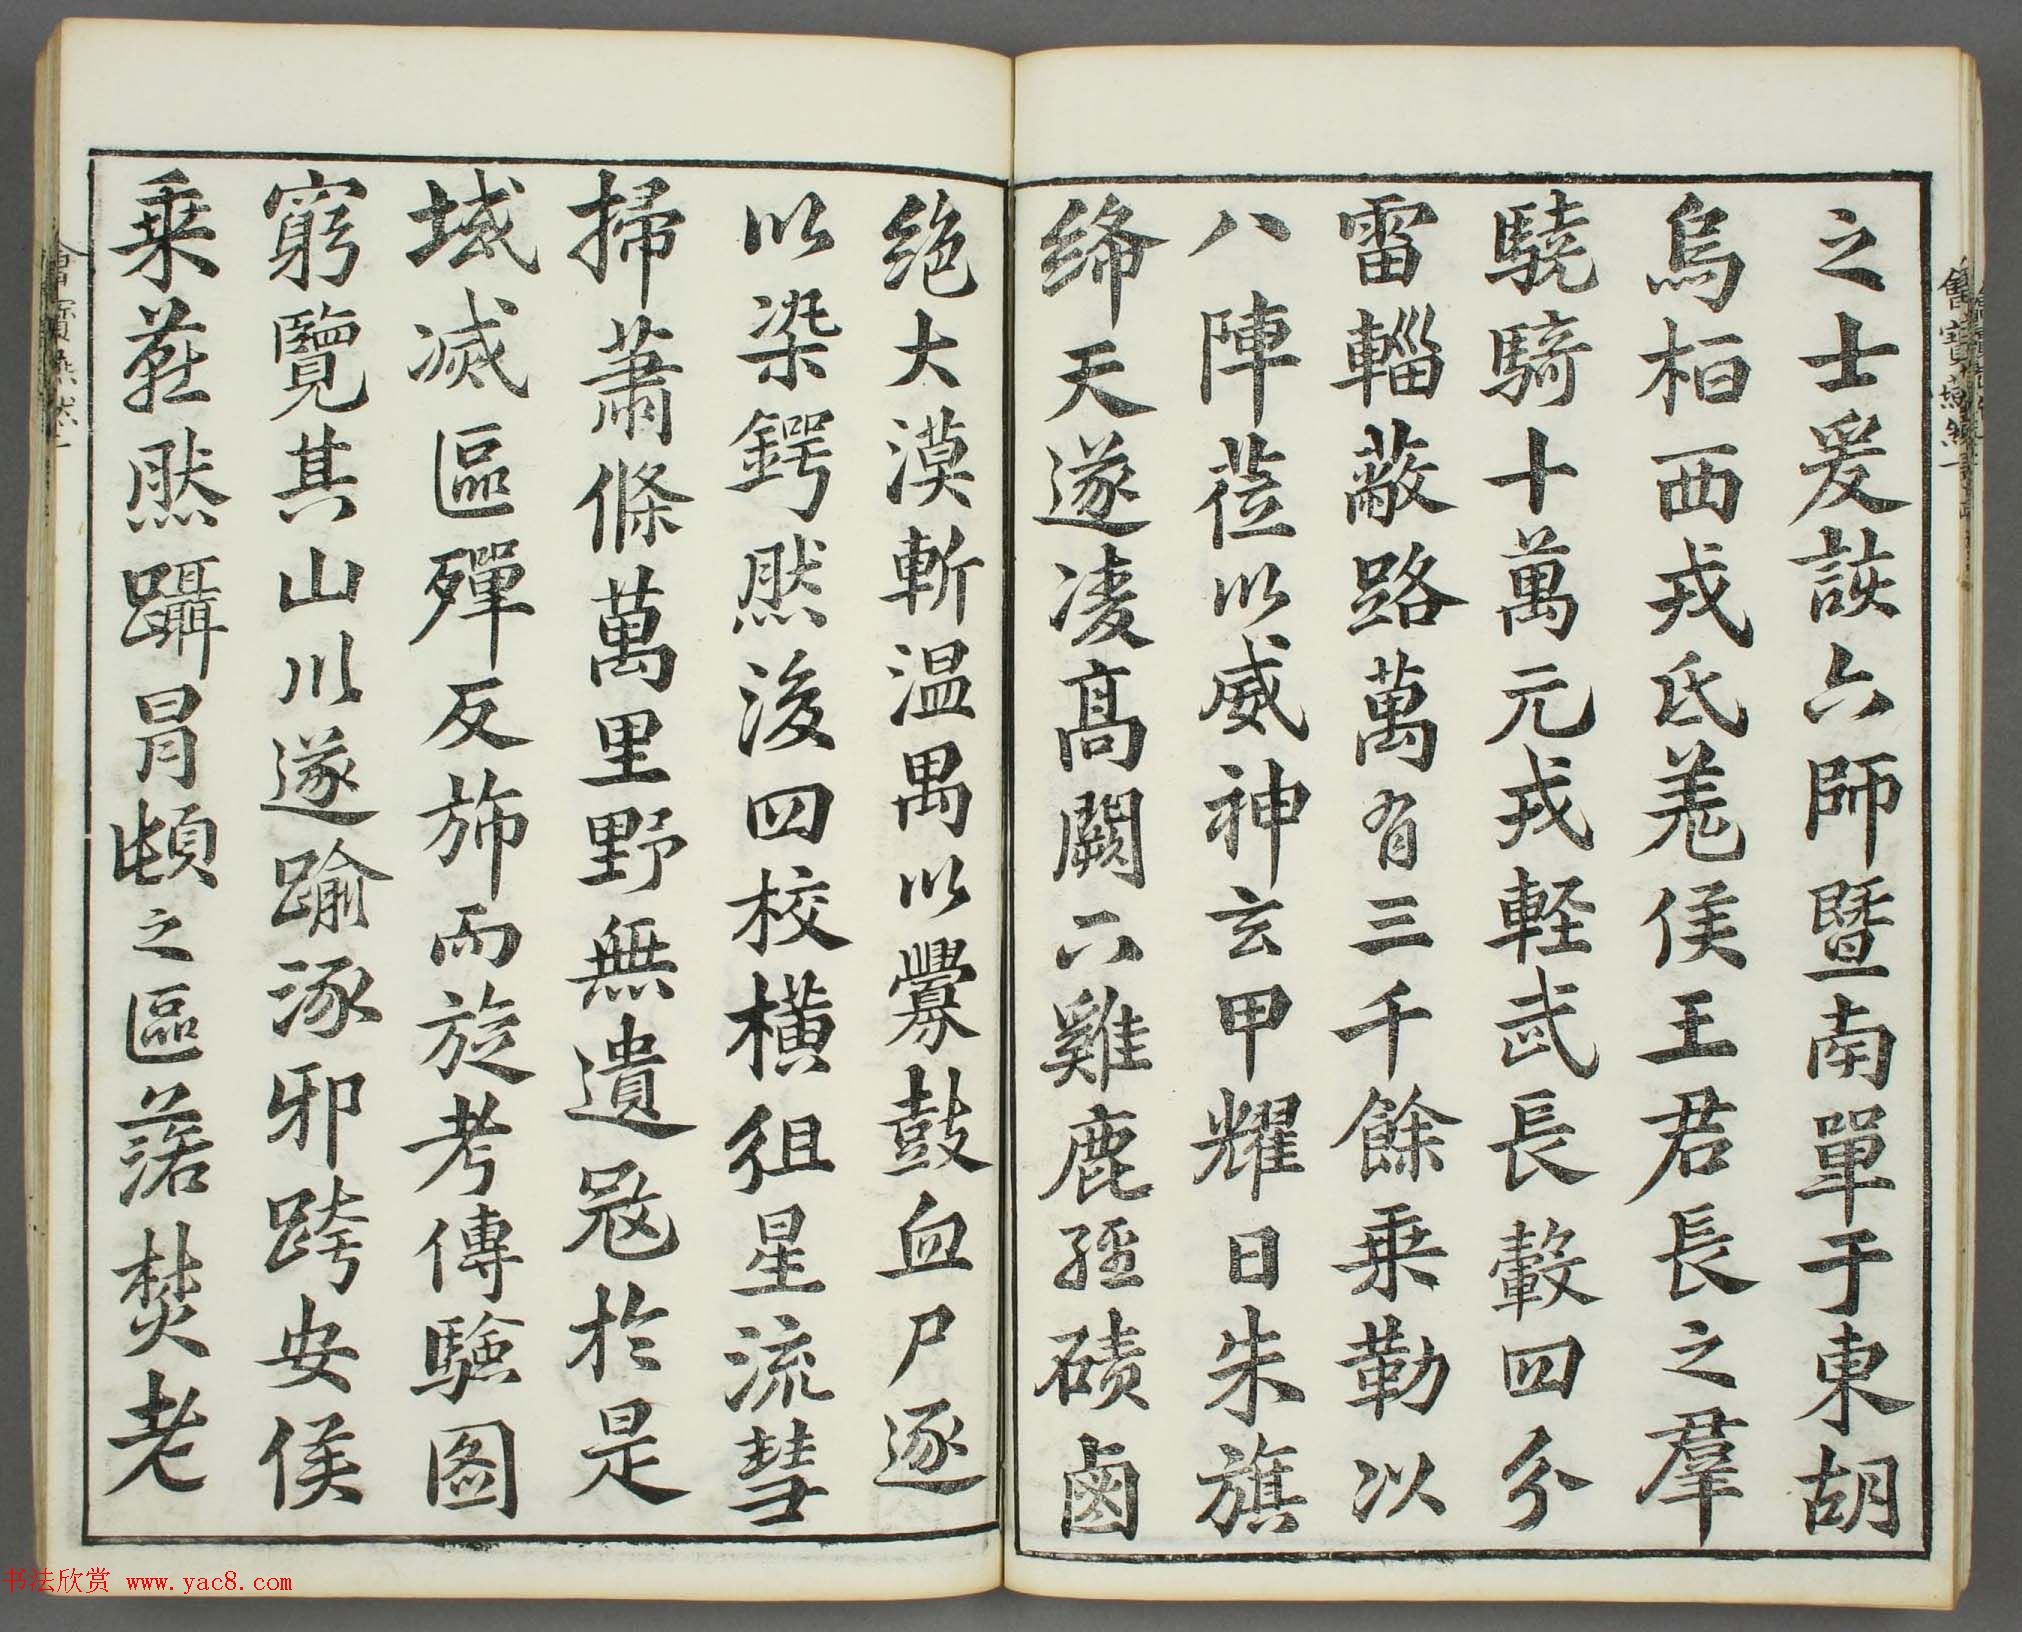 之士爰詼六師暨南單于東胡
烏桓西戎氐羌侯王君長之羣
驍騎十萬元戎輕武長轂四分
雷輜蔽路萬有三千餘乗勒以
八陣莅以威神玄甲耀日朱旗
絳天遂凌髙闕下雞鹿經磧鹵
絶大漠斬温禺以釁鼓血尸逐
以染鍔然後四校橫徂星流彗
掃蕭條萬里野無遺寇於是
域滅區殫反斾而旋考傳驗圖
窮覽其山川遂踰涿邪跨安侯
乗燕然躡冒頓之區落焚老
书法欣赏 www.yac8.com